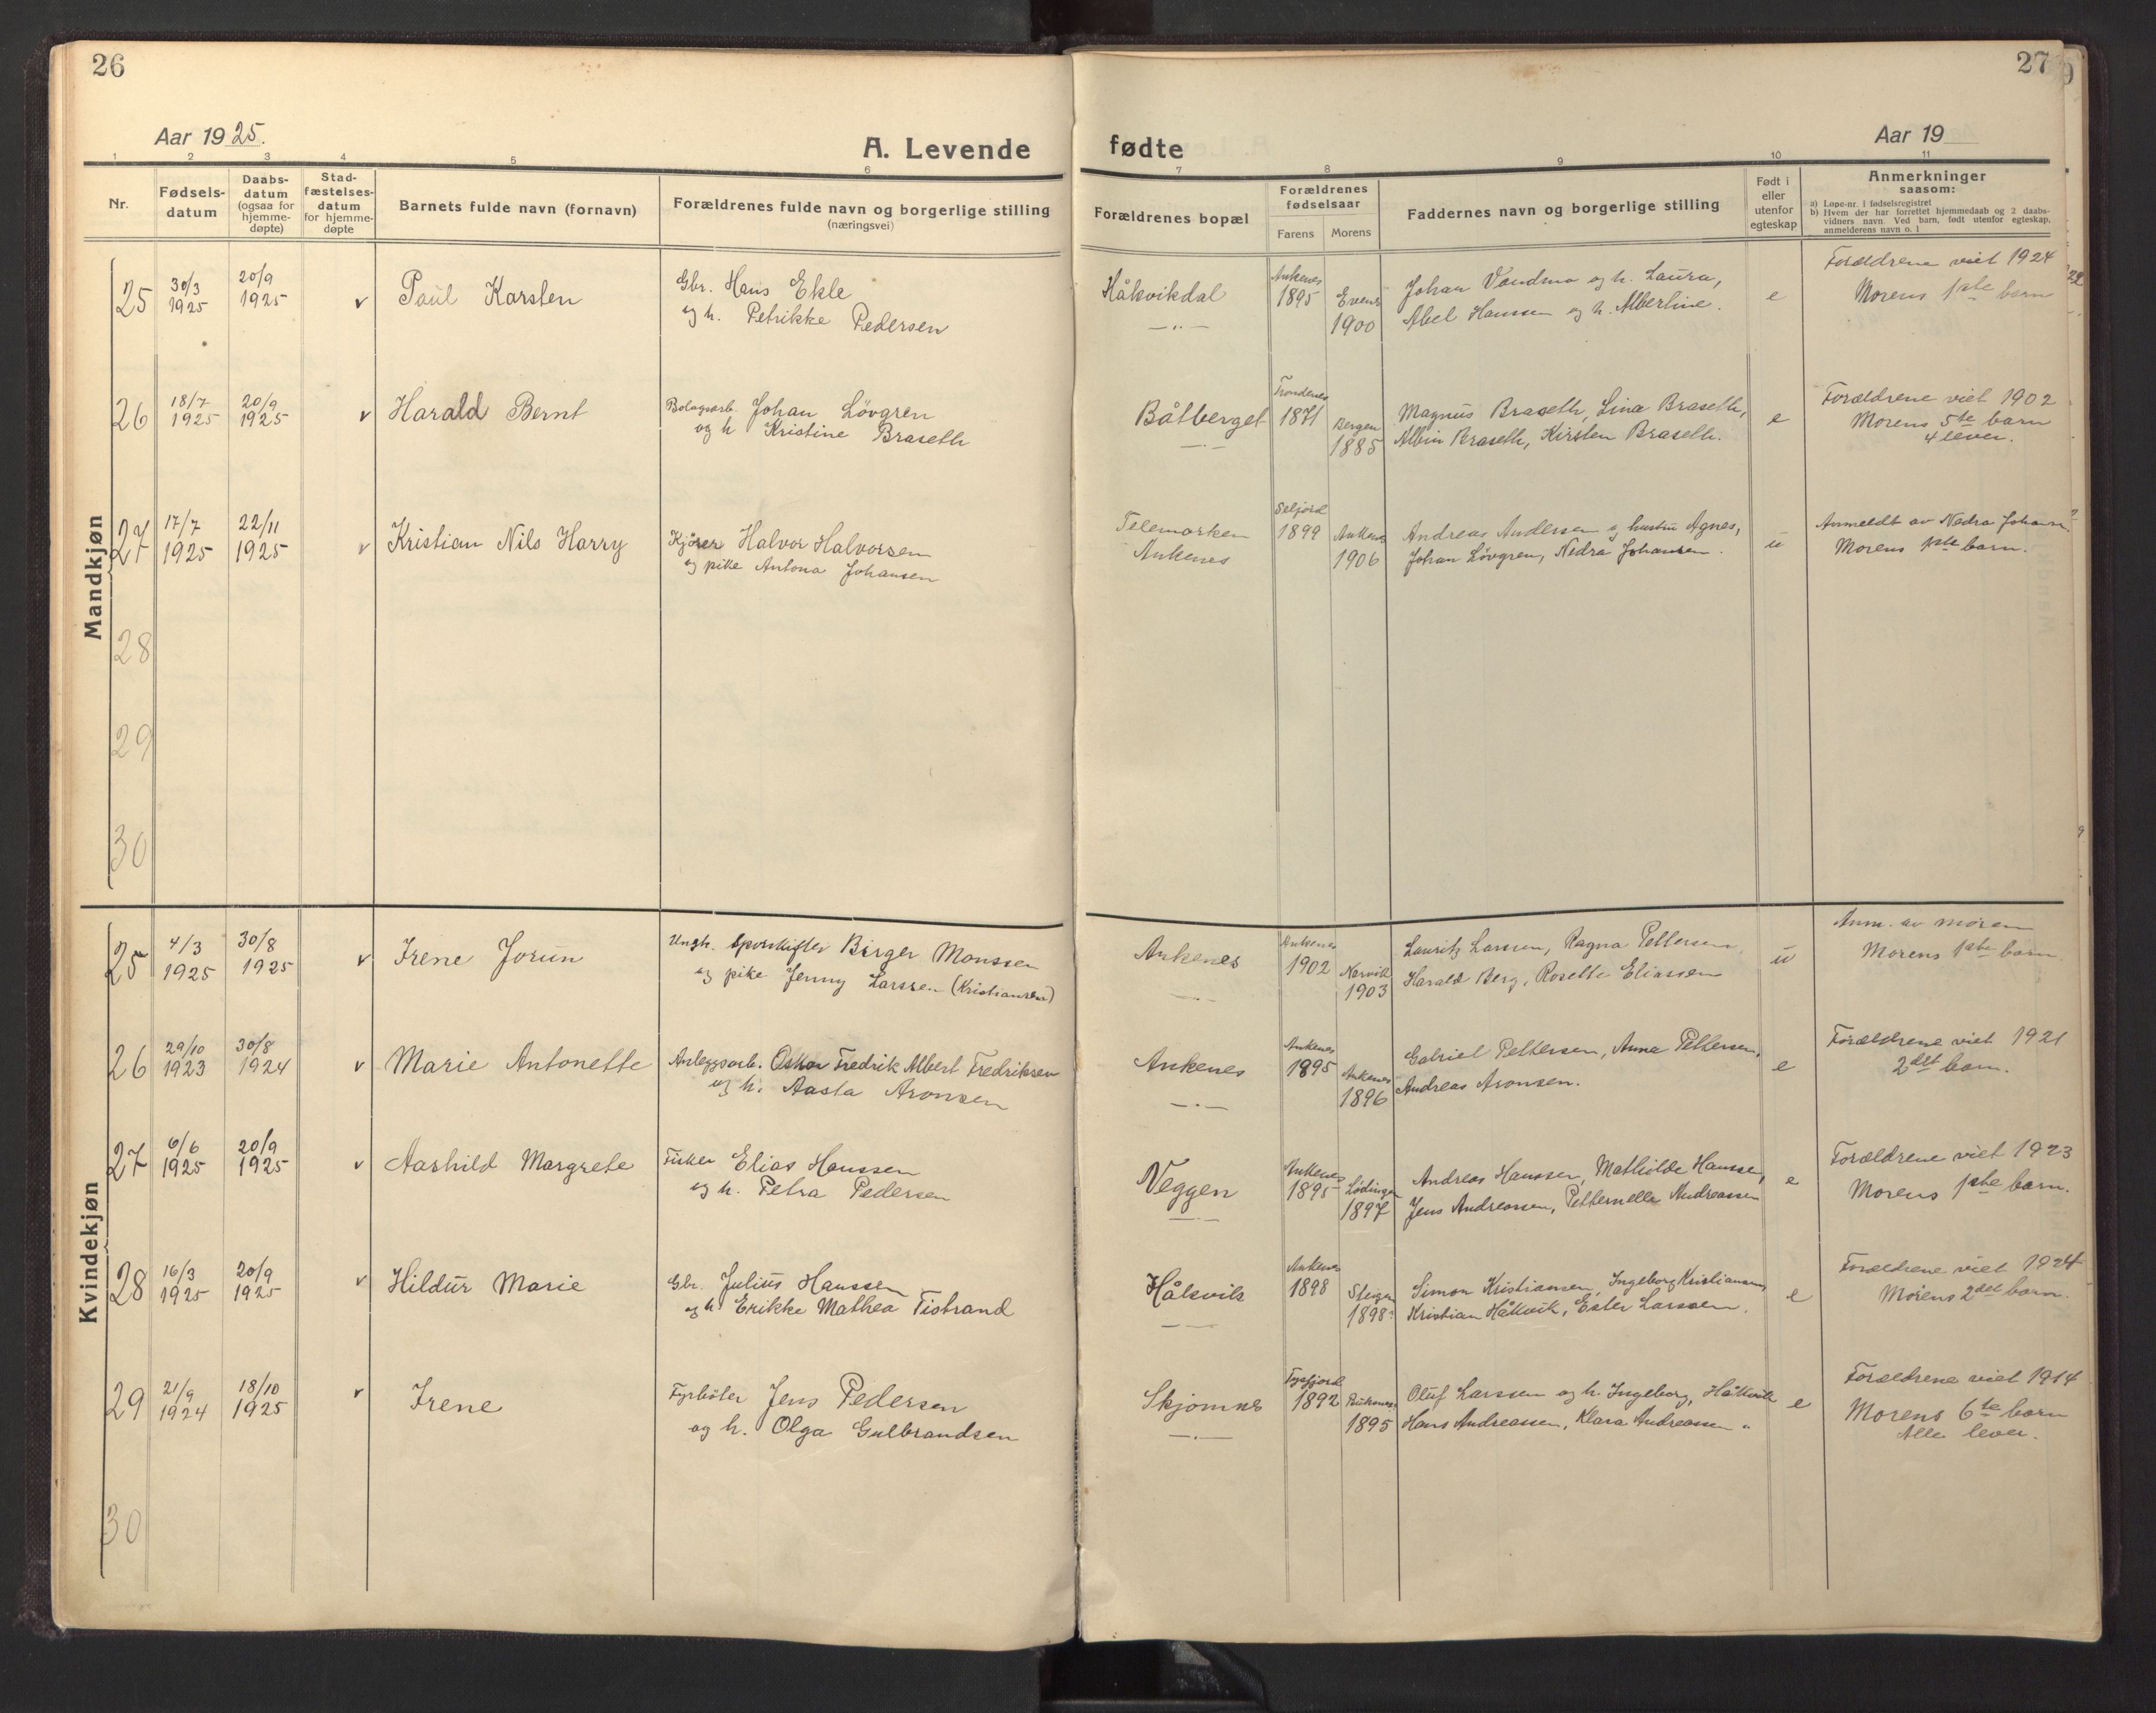 26
Aar 1925.
A. Levende
1 2 3 4 5 6
Nr.
Fødsels-
datum
Daabs-
datum
(ogsaa for
hjemme-
døpte)
Stad-
fæstelses-
datum
for hjemme-
døpte
Barnets fulde navn (fornavn)
Forældrenes fulde navn og borgerlige stilling
(næringsvei)
Mandkjøn
25 30/3 1925 20/9 1925 v Paul Karsten
Gbr. Hans Ekle
og h. Petrikke Pedersen
26 18/7 1925 20/9 1925 v Harald Bernt
Bolagsarb. Johan Lövgren
og h Kristine Braseth
27 17/7 1925 22/11 1925 v Kristian Nils Harry
Kjörer Halvor Halvorsen
og pike Antona Johansen
28
29
30
Kvindekjøn
25 4/3 1925 30/8 1925 v Irene Jorun
Ungk. Sporskifter Birger Monssen
og pike Jenny Larssen (Kristiansen)
26 29/10 1923 30/8 1924 v Marie Antonette
Anleggsarb. Oskar Fredrik Albert Fredriksen
og h. Aasta Aronsen
27 6/6 1925 20/9 1925 v Aashild Margrete
Fisker Elias Hanssen
og h. Petra Pedersen
28 16/3 1925 20/9 1925 v Hildur Marie
Gbr. Julius Hanssen
og h. Erikke Mathea Tistrand
29 21/9 1924 18/10 1925 v Irene
Fyrböter Jens Pedersen
og h. Olga Gulbrandsen
30
27
fødte
Aar 19
7 8 9 10 11
Forældrenes bopæl
Forældrenes
fødselsaar
Farens Morens
Faddernes navn og borgerlige stilling
Født i
eller
utenfor
egteskap
Anmerkninger
saasom:
a) Løpe-nr. i fødselsregistret
b) Hvem der har forrettet hjemmedaab og 2 daabs-
vidners navn. Ved barn, født utenfor egteskap,
anmelderens navn o. l
Håkvikdal
Ankenes 1895
Evenes 1900
Johan Vandmo og h. Laura,
Abel Hanssen og h. Albertine.
e
Forældrene viet 1924
Morens 1ste barn
Båtberget
Trondenes 1871
Bergen 1885
Magnus Braseth, Lina Braseth,
Albin Braseth, Kirsten Braseth.
e
Forældrene viet 1902
Morens 5te barn
4 lever.
Telemarken
Ankenes
Seljord 1899
Ankenes 1906
Andreas Andersen og hustru Agnes,
Johan Lövgren, Nedra Johansen.
u
Anmeldt av Nedra Johansen
Morens 1ste barn.
Ankenes
Ankenes 1902
Narvik 1903
Lauritz Larssen, Ragna Pettersen,
Harald Berg, Roselle Eliassen
u
Anm. av moren
Morens 1ste barn
Ankenes
Ankenes 1895
Ankenes 1896
Gabriel Pettersen, Anna Pettersen,
Andreas Aronsen.
e
Forældrene viet 1921
2det barn.
Veggen
Ankenes 1895
Lødingen 1897
Andreas Hanssen, Mathilde Hanssen,
Jens Andreassen, Petternelle Andreassen
e
Forældrene viet 1923
Morens 1ste barn.
Håkvik
Ankenes 1898
Steigen 1898
Simon Kristiansen, Ingeborg Kristiansen,
Kristian Håkvik, Ester Larssen.
e
Forældrene viet 1924
Morens 2det barn.
Skjomnes
Tysfjord 1892
Buksnes 1895
Oluf Larssen og h. Ingeborg, Håkvik
Hans Andreassen, Klara Andreassen "
e
Forældrene viet 1914
Morens 6te barn
Alle lever.